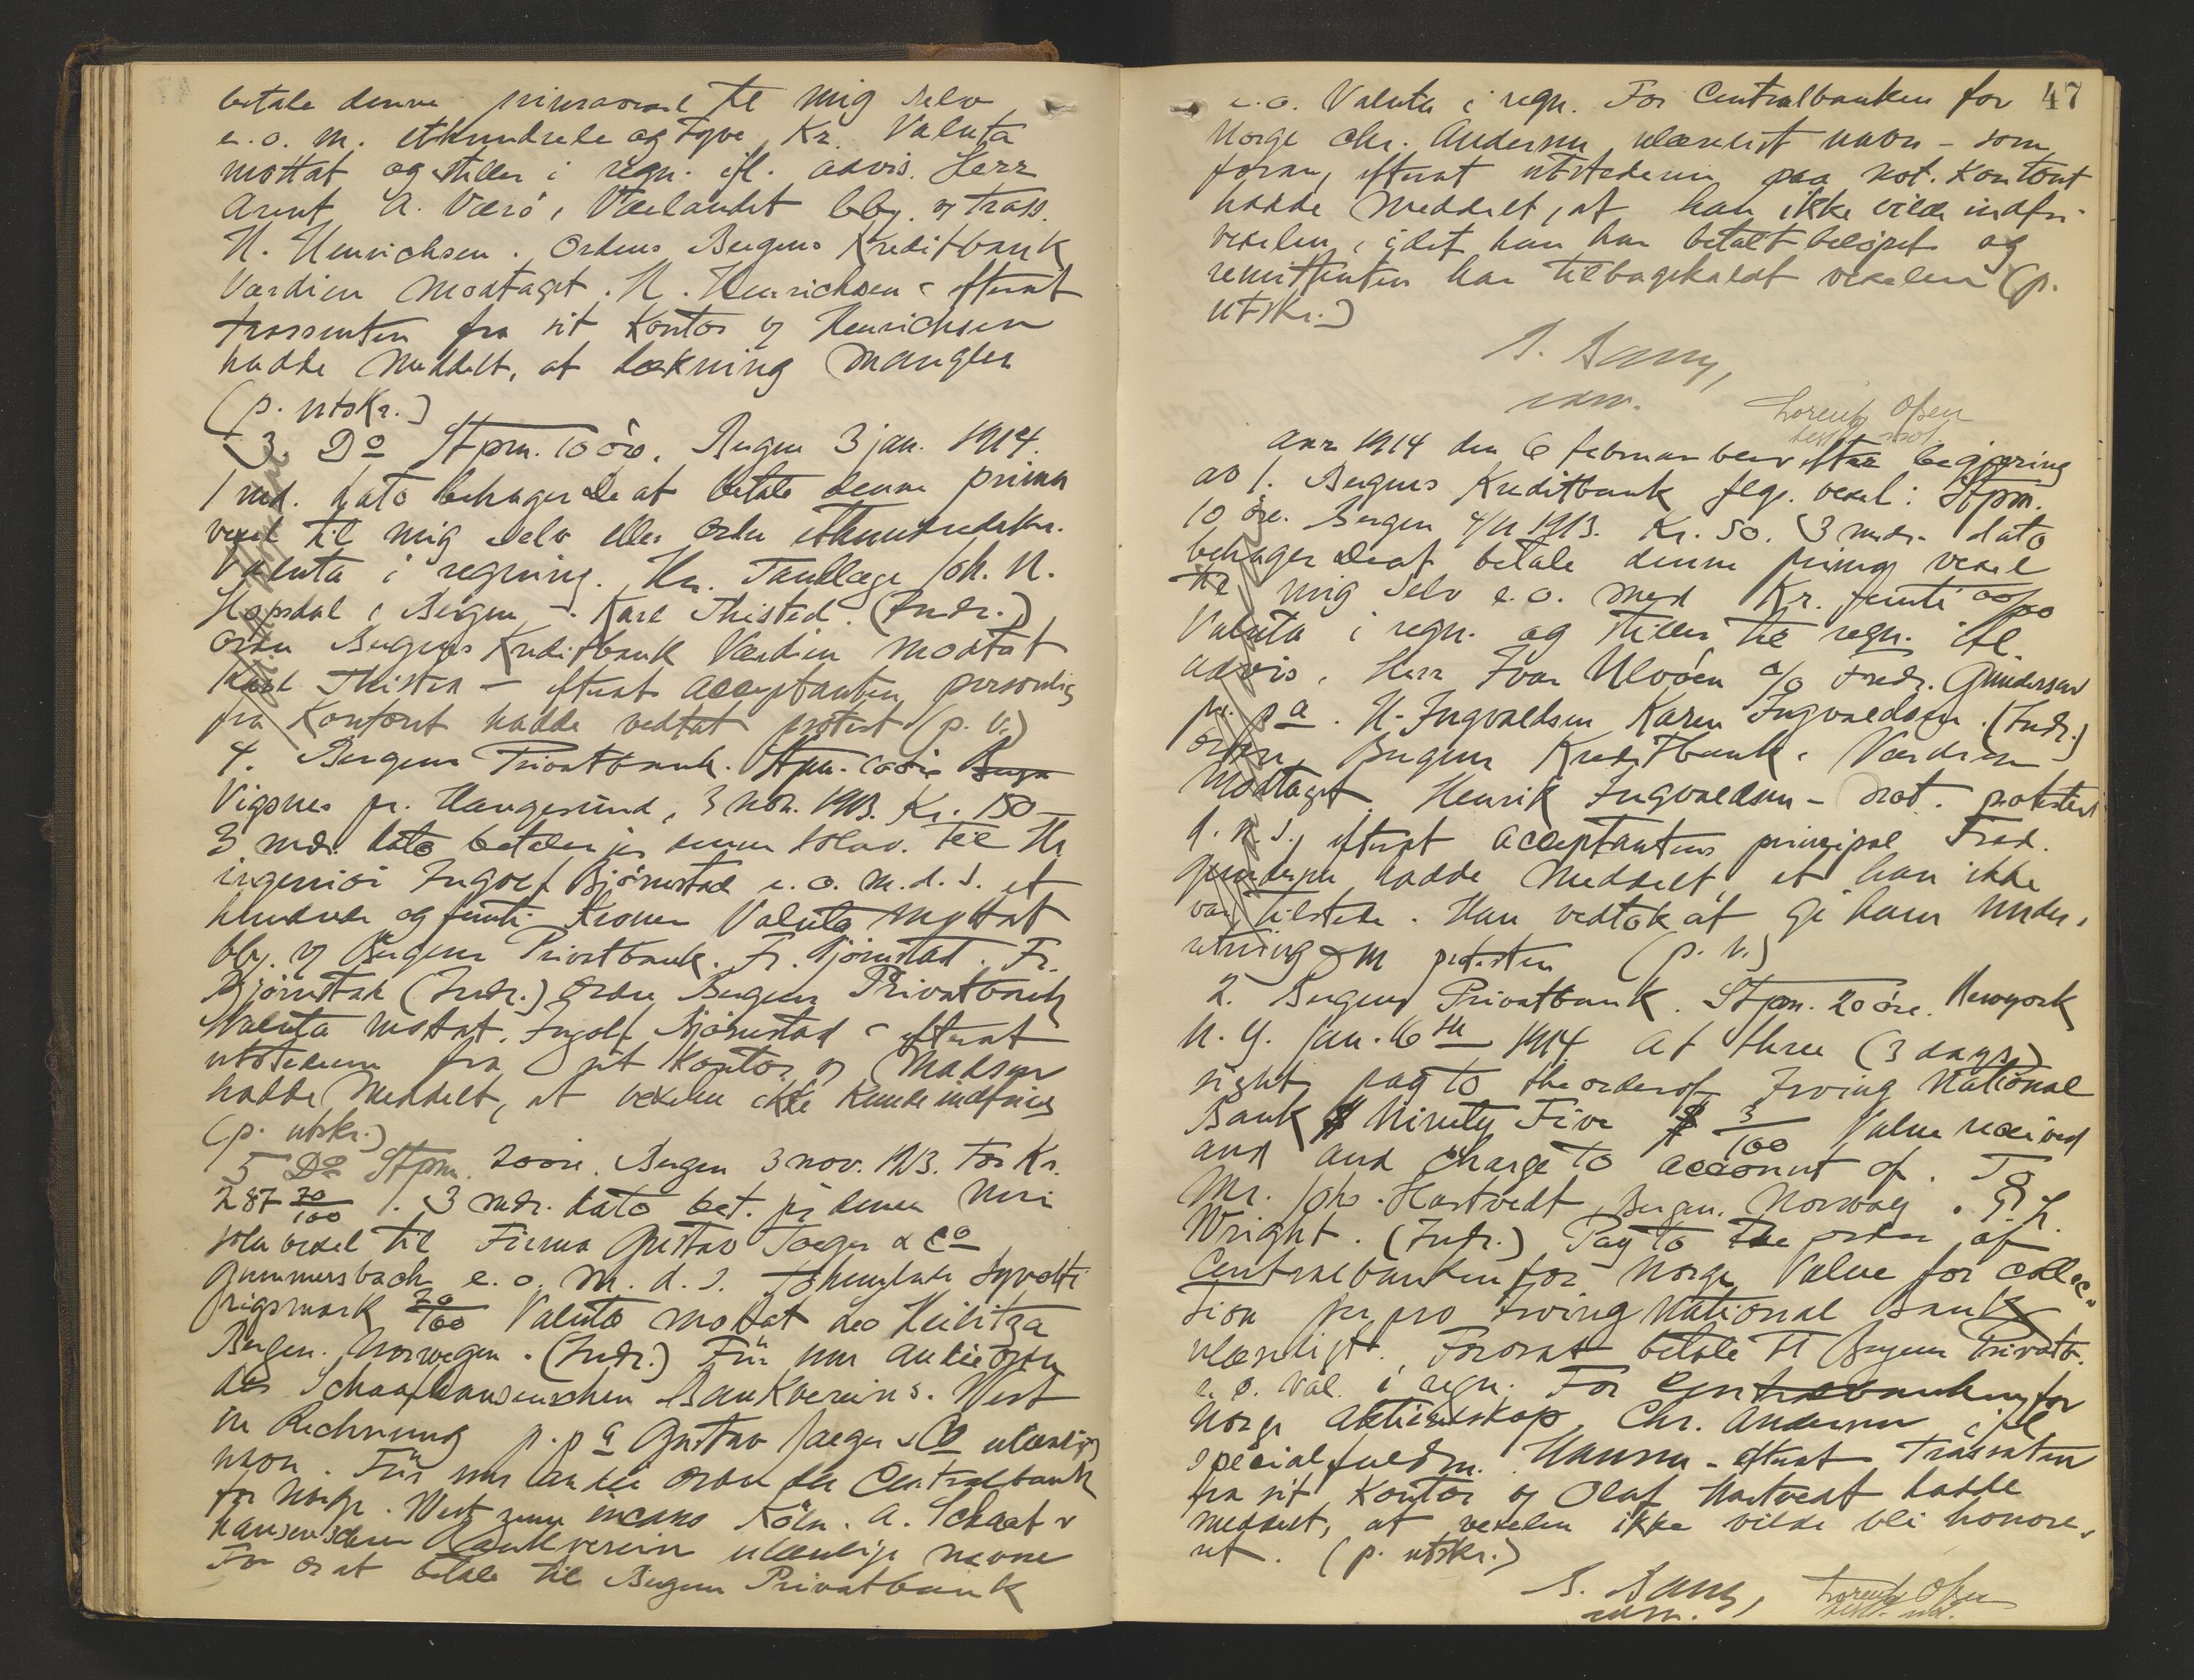 betale denne primavexel til mig selv
e.o. m. ethundrede og tyve Kr. Valuta
mottat og stilles i regn. ifl. advis. Herr
Arent A. Værö, Værlandet bby. og trass.
H. Henrichsen. Ordens Bergens Kreditbank
Værdien modtaget. H. Henrichsen - efterat
trassenten fra sit Kontor og Henrichsen
hadde meddelt, at dækning mangler
(p. utskr.)
3. Do Stpm. 10 öre. Bergen 3 jan. 1914.
1 md. dato behager De at betale denne prima
vexel til mig selv eller ordre ethundredekr.
Valuta i regning. Hr. Tandlæge Joh. N.
Hopsdal i Bergen - Karl Thisted. (Indr.)
ordre Bergens Kreditbank Værdien modtat
Karl Thisted - efterat acceptanten personlig
fra Kontoret hadde vedtat protest (p. v.)
4. Bergens Privatbank. Stpm. 10 öre Bergen
Vigsnes pr. Haugesund, 3 nov. 1913. Kr. 150 -
3 mdr. dato betaler jeg denne solav. til Hr
ingeniör Ingolf Björnstad e. o. m. d. s. et
hundrede og femti Kroner Valuta mottat
bby. og Bergens Privatbank. Fr. Björnstad. Fr.
Björnstad (Indr.) Ordre Bergens Privatbank
Valuta mottat. Ingolf Björnstad - efterat
utstederen fra sit Kontor og Madsen
hadde meddelt, at vexelen ikke kunde indfries
(p. utskr.)
5 Do Stpm. 20 öre. Bergen 3 nov. 1913. For Kr.
287 70/100 /. 3 mdr. dato bet. jeg denne min
sola vexel til Firma Gustav Jaeger & Co
Gummersbach e. o. m. d. s. tohundrede syvotti
rigsmark 70/100 Valuta mottat Leo Heilitza
Bergen. Norwegen. (Indr.) Für uns an die Ordre
des Schaaffhausenschen Bankvereins. Wert
in Rechnung p.pa Gustav Jaeger & Co ulæselig
navn. Für uns an die Ordre der Centralbank
for Norge. Wert zum incasso Köln. A. Schaaff
hausenschen Bankverein ulæselige navne
For os at betale til Bergens Privatbank
47
e.o. Valuta i regn. For Centralbanken for
Norge Chr. Andersen ulæselist navn - som
foran, efterat utstederen paa not. Kontoret
hadde meddelt, at han ikke vilde indfri
vexelen, idet han har betalt belöpet og
remittenten har tilbagekaldt vexelen (p.
utskr.)
Lorentz Olsen
test. not.
Aar 1914 den 6 februar blev efter begjæring
av 1. Bergens Kreditbank flge. vexel: Stpm.
10 öre. Bergen 4/11 1913. Kr. 50. 3 mdr. dato
behager De at betale denne prima vexel
til mig selv e.o. med Kr. femti 00/00
Valuta i regn. og stilles til regn. ifl.
advis. Herr Ivar Ulvöen a/o Fredr. Gundersen
pr. pa. H. Ingvaldsen Karen Ingvaldsen. (Indr.)
ordre Bergens Kreditbank. Værdien
modtaget. Henrik Ingvaldsen - not. protestert
d. n. s., efterat acceptantens principal Fred.
Gundersen hadde meddelt, at han ikke
var tilstede. Han vedtok at gi ham under,
retning om protesten (p. v.)
2. Bergens Privatbank. Stpm. 20 öre. Newyork
N. Y. Jan. 16th 1914 At three (3 days)
sight pay to the order of Irving National
Bank $ Ninety Five $ 3/100 Value received
and and charge to account of. To
Mr. Joh. Hartvedt, Bergen. Norway.
Wright. (Indr.) Pay to the order of
Centralbanken for Norge Value for collec"
tion per pro Irving National Bank
ulæseligt. For os at betale til Bergens Privatb.
e. o. Val. i regn. For Centralbanken for
Norge Aktieselskap, Chr. Andersen ifl
specialfuldm. Hansen - efterat trassaten
fra sit Kontor og Olaf Hartvedt hadde
meddelt, at vexelen ikke vilde bli honore,
ret. (p. utskr.)
Lorentz Olsen
test. not.